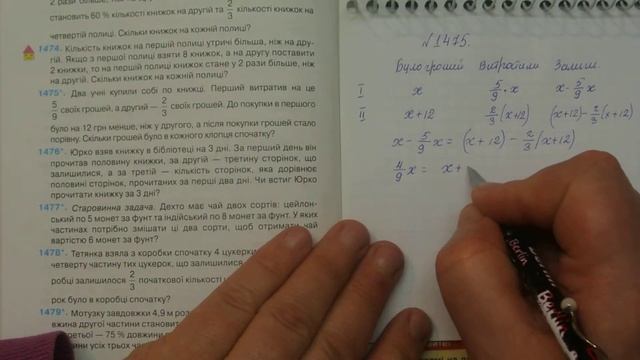 2 рази
становить 60 % кількості книжок на другій та 2/3 кількості книжок на
четвертій полиці. Скільки книжок на кожній полиці?
1474. Кількість книжок на першій полиці утричі більша, ніж на дру-
гій. Якщо з першої полиці взяти 8 книжок, а на другу поставити
2 книжки, то на першій полиці книжок стане у 2 рази більше, ніж
на другій. Скільки книжок на кожній полиці?
1475*. Два учні купили собі по книжці. Перший витратив на це
5/9 своїх грошей, а другий — 2/3 своїх грошей. До покупки в першого
було на 12 грн менше, ніж у другого, а після покупки грошей стало
порівну. Скільки грошей було в кожного хлопця спочатку?
1476*. Юрко взяв книжку в бібліотеці на 3 дні. За перший день він
прочитав половину книжки, за другій — третину сторінок, що
залишилися, а за третій — кількість сторінок, яка дорівнює
половині сторінок, прочитаних за перші два дні. Чи встиг Юрко
прочитати книжку за 3 дні?
1477*. Старовинна задача. Дехто має чай двох сортів: цейлон-
ський по 5 монет за фунт та індійський по 8 монет за фунт. У яких
частинах потрібно змішати ці два сорти, щоб отримати чай
вартістю 6 монет за фунт?
1478*. Тетянка взяла з коробки спочатку 4 цукерки
четверту частину тих цукерок, що залишилися
робці залишилося 2/3 початкової кількості
рок було в коробці спочатку?
1479*. Мотузку завдовжки 4,9 м роз
вжина другої частини становит
ретьої — 75 % довжини
ини усіх трьох час
№1475.
Було грошей Витратили Залиш.
I x 5/9·x x-5/9x
II x+12 2/3(x+12) (x+12)-2/3(x+12)
x - 5/9x = (x+12) - 2/3(x+12)
4/9x = x+
Berlin
Berlin